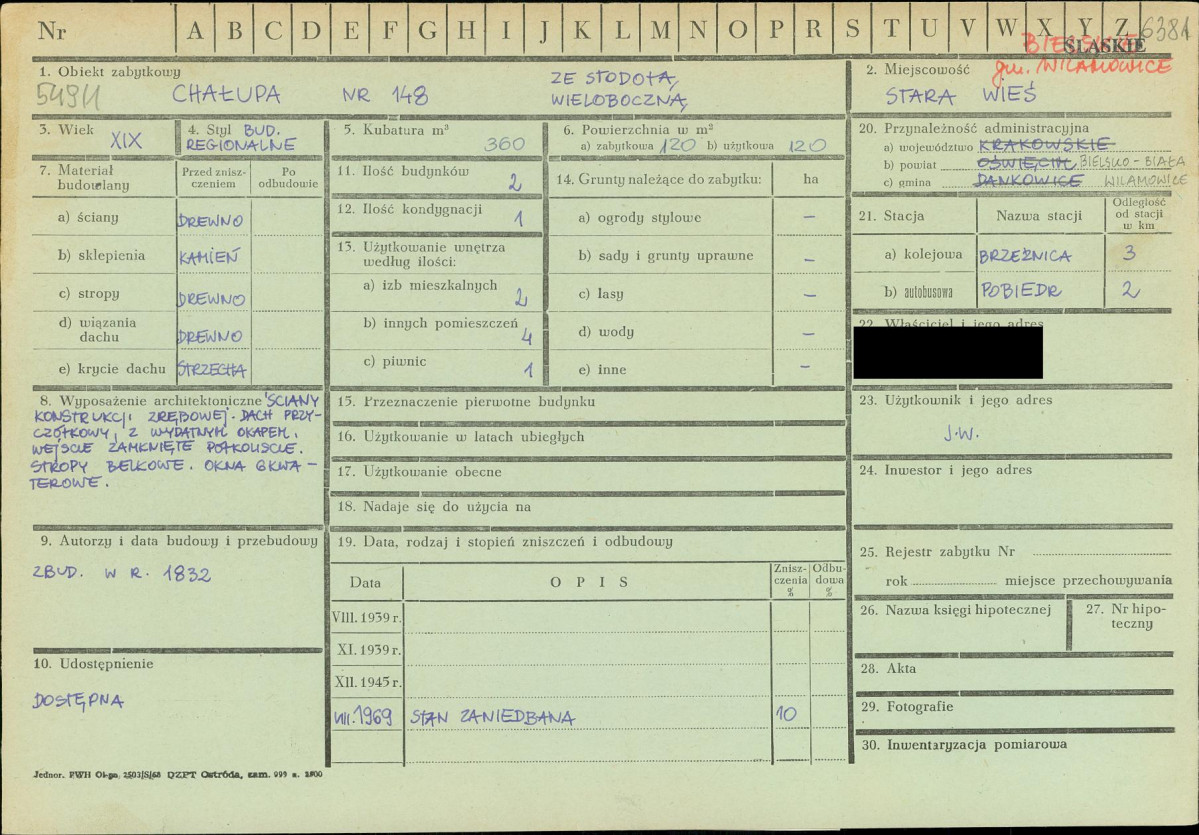 Nr A B C D E F G H I J K L M N O P R S T U V W X Y Z 6381
BIELSKIE ŚLĄSKIE
gm. WILAMOWICE
1. Obiekt zabytkowy
CHAŁUPA NR 148
ZE STODOŁĄ,
WIELOBOCZNĄ
2. Miejscowość
STARA WIEŚ
3. Wiek
XIX
4. Styl BUD.
REGIONALNE
5. Kubatura m³
360
6. Powierzchnia w m²
a) zabytkowa 120 b) użytkowa 120
20. Przynależność administracyjna
a) województwo KRAKOWSKIE
b) powiat OŚWIĘCIM BIELSKO-BIAŁA
c) gmina DANKOWICE WILAMOWICE
7. Materiał budowlany
Przed zniszczeniem
Po odbudowie
a) ściany DREWNO
b) sklepienia KAMIEŃ
c) stropy DREWNO
d) wiązania dachu DREWNO
e) krycie dachu STRZECHA
11. Ilość budynków 2
12. Ilość kondygnacji 1
13. Użytkowanie wnętrza
według ilości:
a) izb mieszkalnych 2
b) innych pomieszczeń 4
c) piwnic 1
14. Grunty należące do zabytku: ha
a) ogrody stylowe –
b) sady i grunty uprawne –
c) lasy –
d) wody –
e) inne –
21. Stacja Nazwa stacji Odległość od stacji w km
a) kolejowa BRZEŹNICA 3
b) autobusowa POBIEDR 2
22. Właściciel i jego adres
8. Wyposażenie architektoniczne ŚCIANY
KONSTRUKCJI ZRĘBOWEJ. DACH PRZY-
CZÓŁKOWY, Z WYDATNYM OKAPEM.
WEJŚCIE ZAMKNIĘTE PÓŁKOLIŚCIE.
STROPY BELKOWE. OKNA 6 KWA-
TEROWE.
15. Przeznaczenie pierwotne budynku
16. Użytkowanie w latach ubiegłych
17. Użytkowanie obecne
18. Nadaje się do użycia na
23. Użytkownik i jego adres
J.W.
24. Inwestor i jego adres
9. Autorzy i data budowy i przebudowy
ZBUD. W R. 1832
19. Data, rodzaj i stopień zniszczeń i odbudowy
Data OPIS Zniszczenia % Odbudowa %
VIII. 1939 r.
XI. 1939 r.
XII. 1945 r.
VIII. 1969 STAN ZANIEDBANA 10
25. Rejestr zabytku Nr
rok miejsce przechowywania
26. Nazwa księgi hipotecznej
27. Nr hipoteczny
28. Akta
29. Fotografie
30. Inwentaryzacja pomiarowa
10. Udostępnienie
DOSTĘPNA